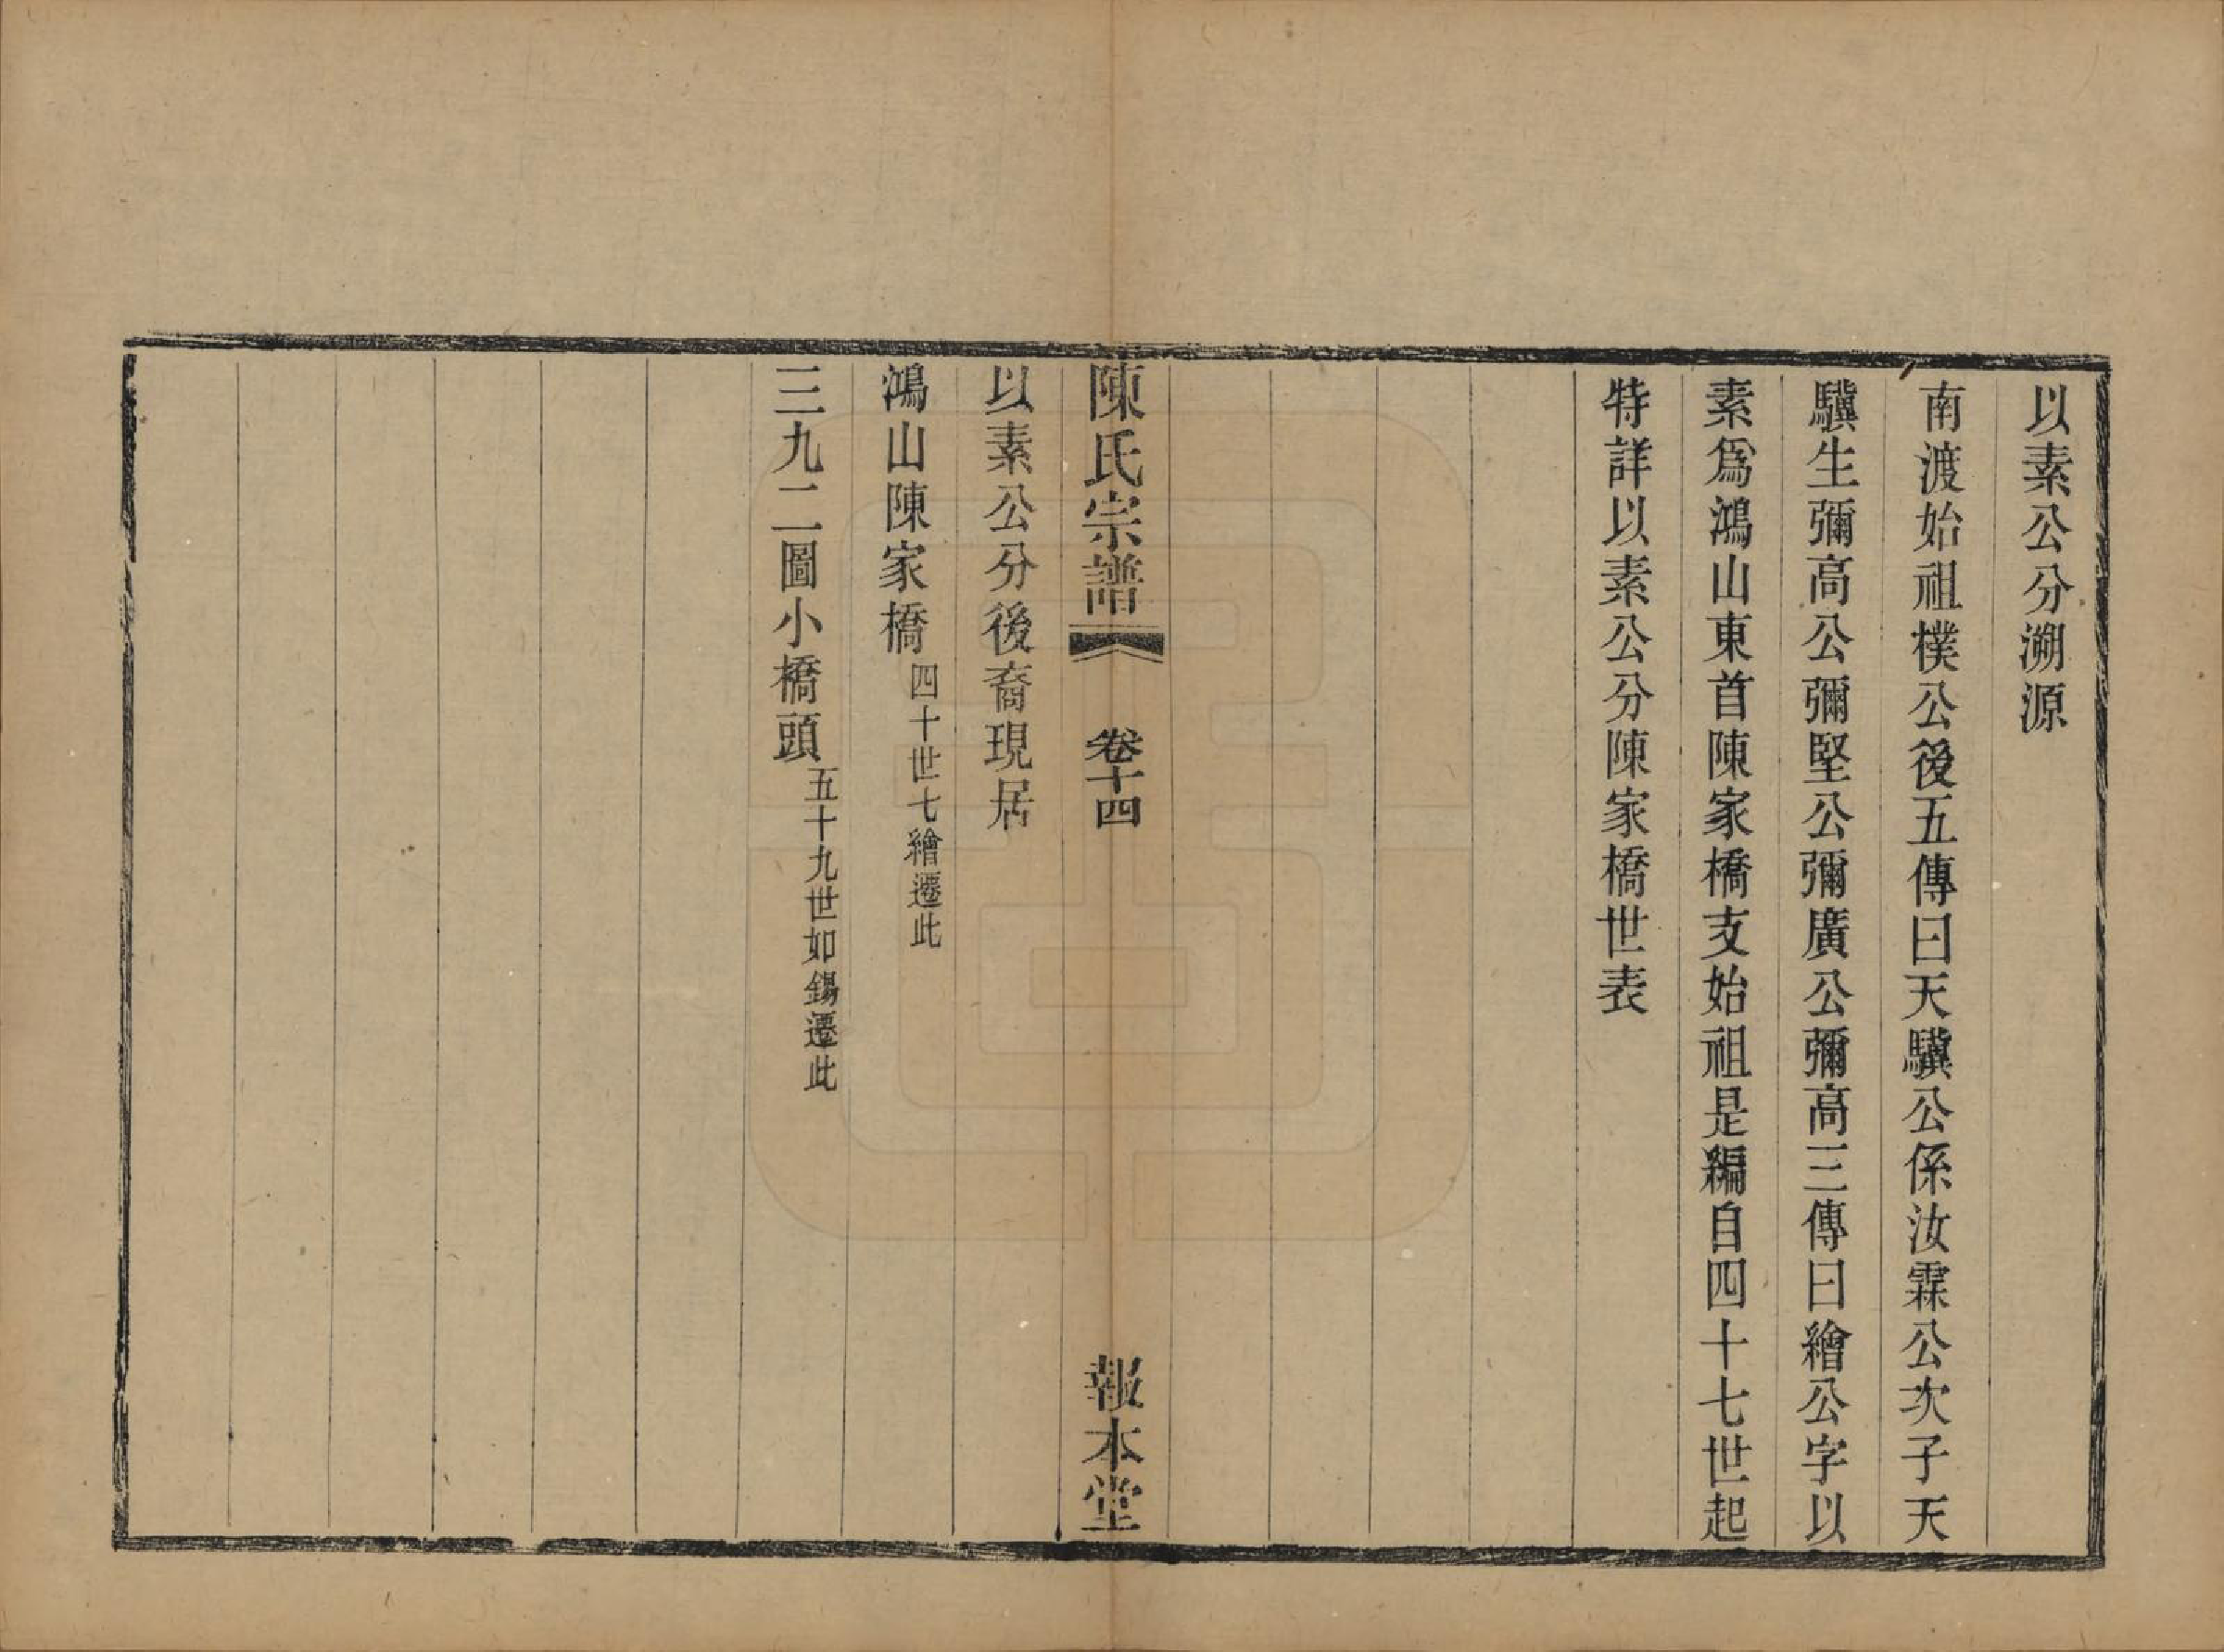 以素公分溯源
南渡始祖樸公後五傳曰天驥公係汝霖公次子天
驥生彌高公彌堅公彌廣公彌高三傳曰繪公字以
素爲鴻山東首陳家橋支始祖是編自四十七世起
特詳以素公分陳家橋世表
陳氏宗譜 卷十四 報本堂
以素公分後裔現居
鴻山陳家橋四十世七繪遷此
三九二圖小橋頭五十九世如錫遷此